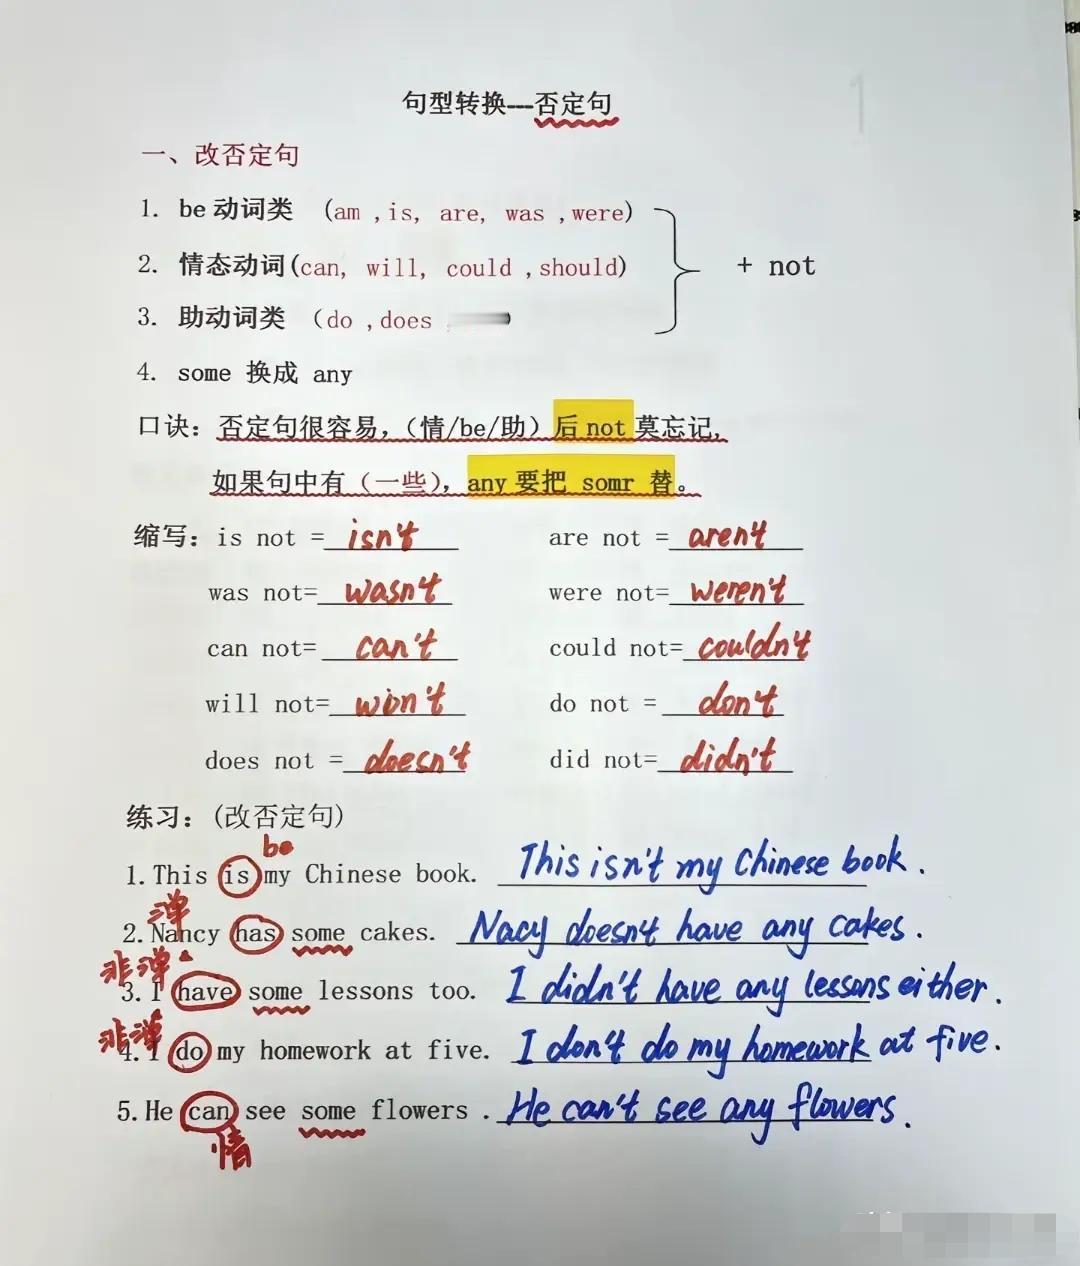 句型转换---否定句
一、改否定句
1. be 动词类 (am ,is, are, was ,were)
2. 情态动词(can, will, could ,should) + not
3. 助动词类 (do ,does
4. some 换成 any
口诀: 否定句很容易,(情/be/助) 后 not 莫忘记,
如果句中有 (一些), any 要把 somr 替。
缩写: is not = isn't are not = aren't
was not= wasn't were not= weren't
can not= can't could not= couldn't
will not= won't do not = don't
does not = doesn't did not= didn't
练习: (改否定句)
be
1. This is my Chinese book. This isn't my Chinese book.
弹
2. Nancy has some cakes. Nacy doesn't have any cakes.
非弹
3. I have some lessons too. I didn't have any lessons either.
非弹
4. I do my homework at five. I don't do my homework at five.
5. He can see some flowers . He can't see any flowers.
情